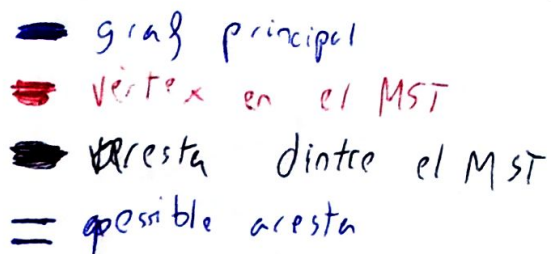 graf principal
vèrtex en el MST
aresta dintre el MST
possible aresta